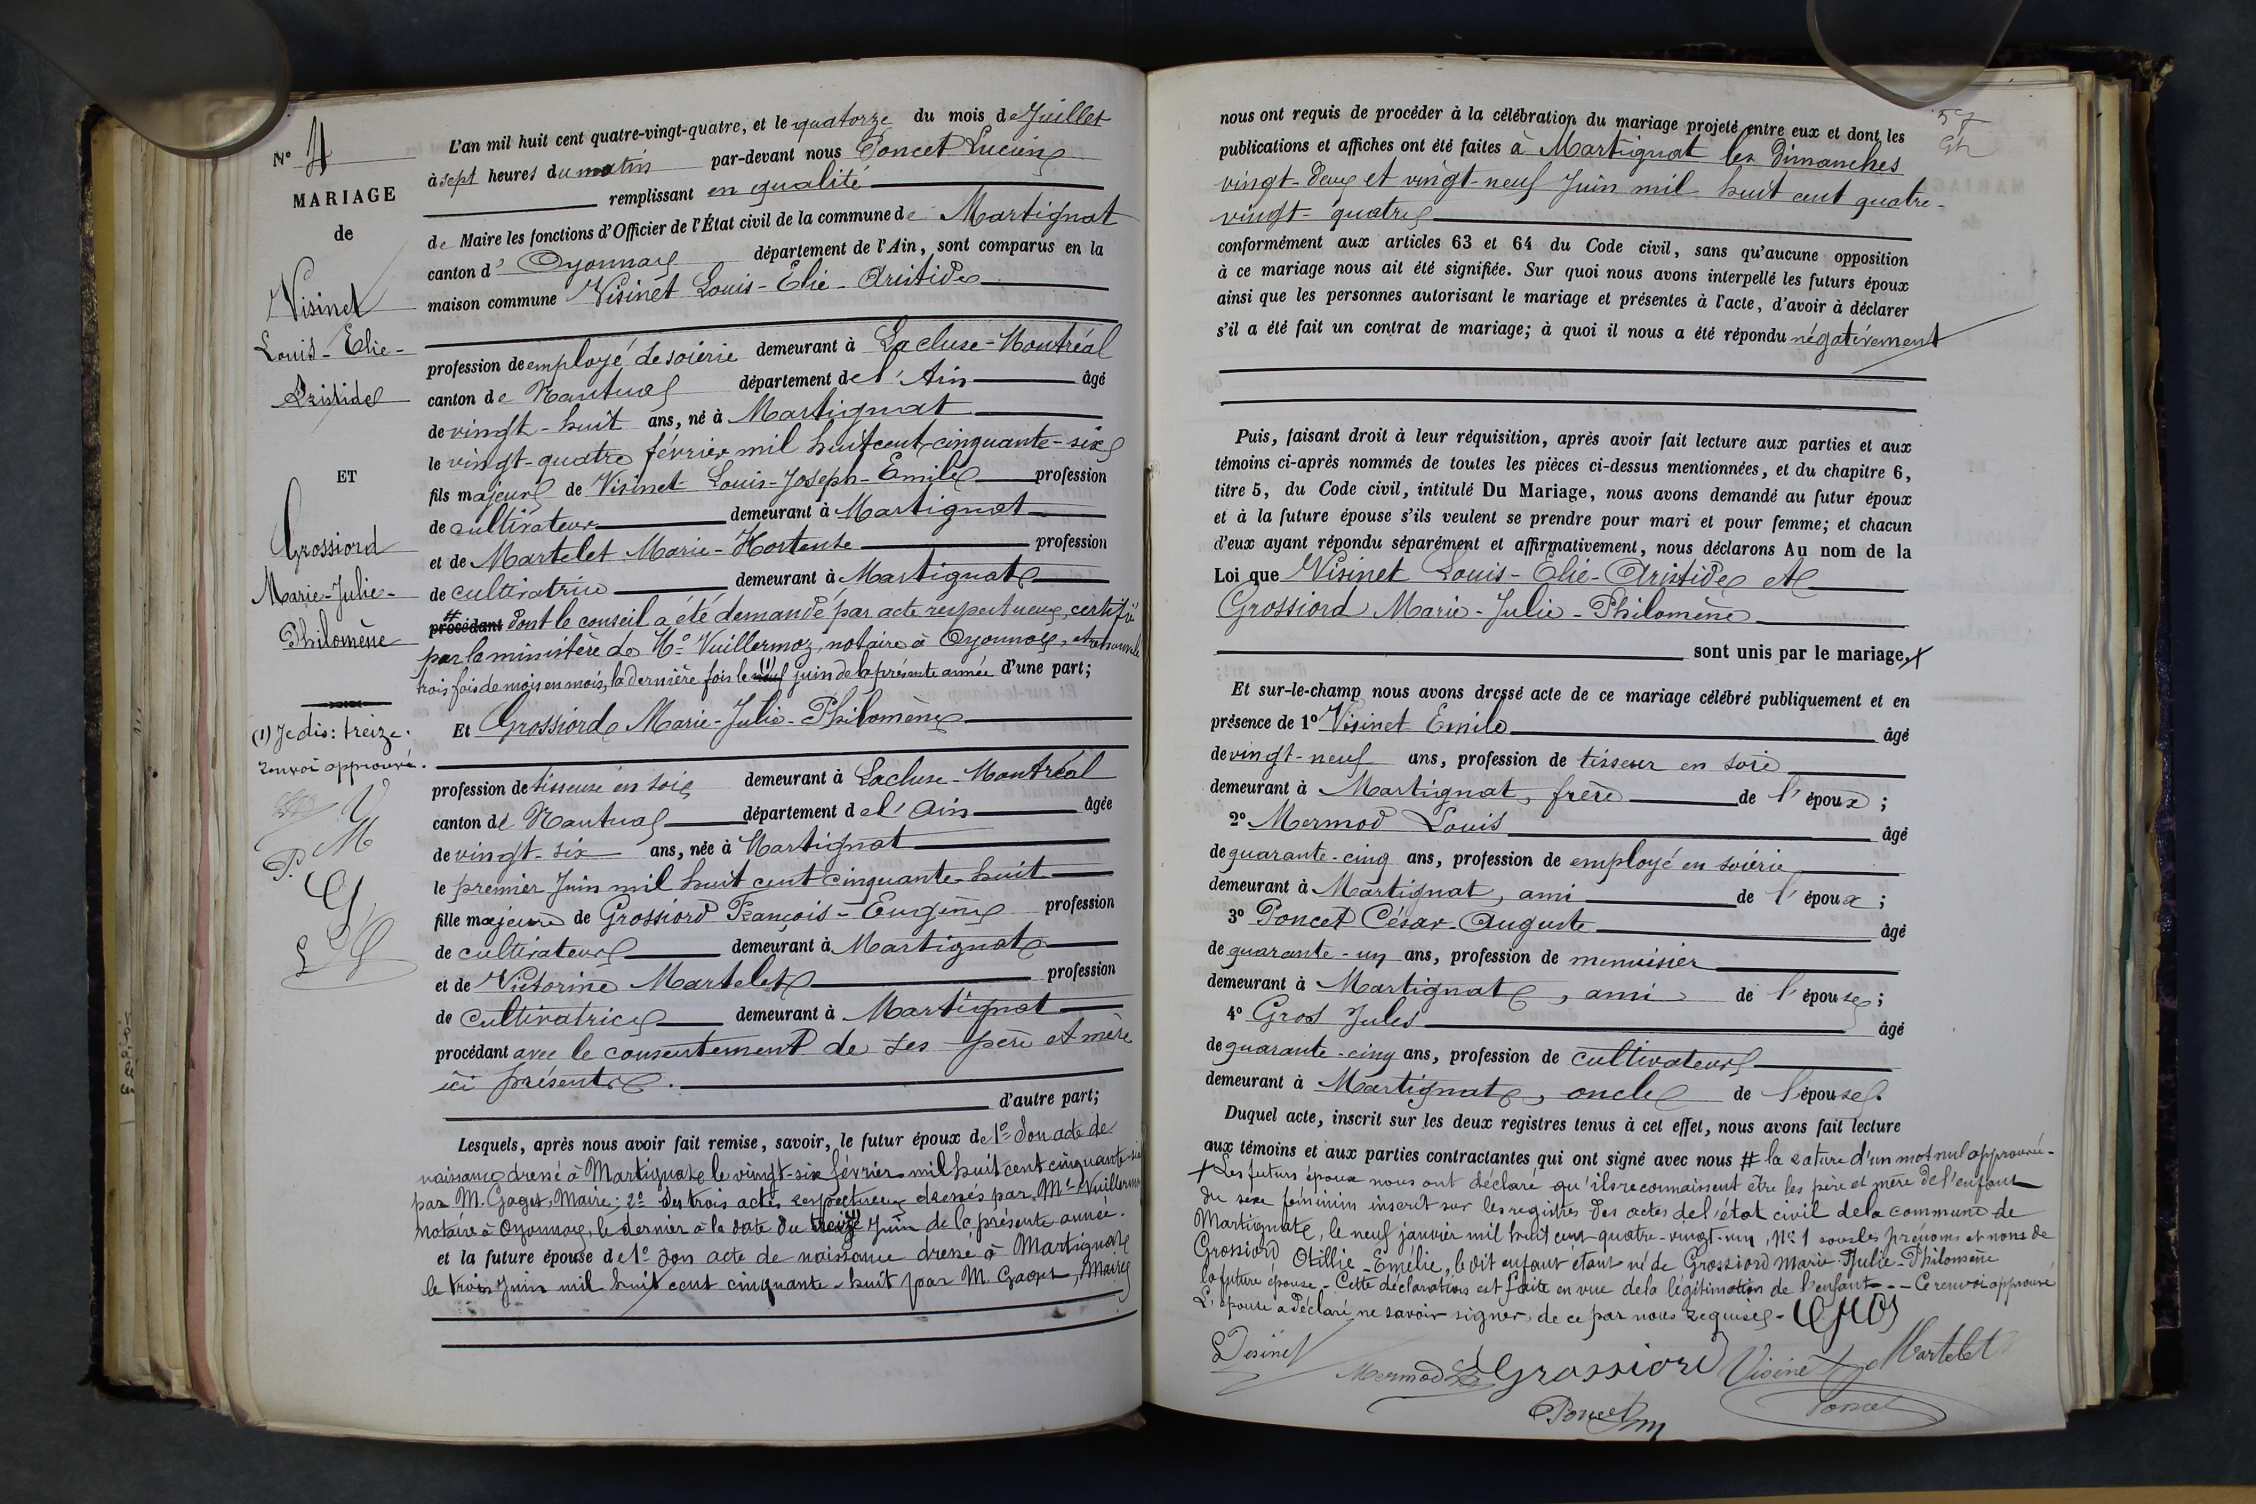 N° 4
MARIAGE
de
Visinet
Louis-Elie-
Aristide
ET
Grossiord
Marie-Julie-
Philomène
(1) Je dis: treize.
renvoi approuvé.
V
M
P.
G
L'an mil huit cent quatre-vingt-quatre, et le quatorze du mois de Juillet
à sept heures du matin par-devant nous Poncet Lucien
remplissant en qualité
de Maire les fonctions d'Officier de l'État civil de la commune de Martignat
canton d' Oyonnax département de l'Ain, sont comparus en la
maison commune Visinet Louis-Elie-Aristide
profession de employé de soierie demeurant à Lacluse-Montréal
canton de Nantua département de l'Ain âgé
de vingt-huit ans, né à Martignat
le vingt-quatre février mil huit cent cinquante-six
fils majeur de Visinet Louis-Joseph-Emile profession
de cultivateur demeurant à Martignat
et de Martelet Marie-Hortense profession
de cultivatrice demeurant à Martignat
# procédant dont le conseil a été demandé par acte respectueux, certifié
par le ministère de Me Vuillermoz, notaire à Oyonnax, et renouvelé
trois fois de mois en mois, la dernière fois le neuf (1) juin de la présente année d'une part;
Et Grossiord Marie-Julie-Philomène
profession de tisseuse en soie demeurant à Lacluse-Montréal
canton de Nantua département de l'Ain âgée
de vingt-six ans, née à Martignat
le premier Juin mil huit cent cinquante-huit
fille majeure de Grossiord François-Eugène profession
de cultivateur demeurant à Martignat
et de Victorine Martelet profession
de cultivatrice demeurant à Martignat
procédant avec le consentement de ses père et mère
ici présents.
d'autre part;
Lesquels, après nous avoir fait remise, savoir, le futur époux de 1° son acte de
naissance dressé à Martignat le vingt-six février mil huit cent cinquante-six
par M. Gaget, Maire; 2° des trois actes respectueux dressés par Me Vuillermoz
notaire à Oyonnax, le dernier à la date du treize (1) Juin de la présente année.
et la future épouse de 1° son acte de naissance dressé à Martignat
le trois Juin mil huit cent cinquante-huit par M. Gaget, Maire
57
nous ont requis de procéder à la célébration du mariage projeté entre eux et dont les
publications et affiches ont été faites à Martignat les Dimanches
vingt-deux et vingt-neuf Juin mil huit cent quatre-
vingt-quatre
conformément aux articles 63 et 64 du Code civil, sans qu'aucune opposition
à ce mariage nous ait été signifiée. Sur quoi nous avons interpellé les futurs époux
ainsi que les personnes autorisant le mariage et présentes à l'acte, d'avoir à déclarer
s'il a été fait un contrat de mariage; à quoi il nous a été répondu négativement
Puis, faisant droit à leur réquisition, après avoir fait lecture aux parties et aux
témoins ci-après nommés de toutes les pièces ci-dessus mentionnées, et du chapitre 6,
titre 5, du Code civil, intitulé Du Mariage, nous avons demandé au futur époux
et à la future épouse s'ils veulent se prendre pour mari et pour femme; et chacun
d'eux ayant répondu séparément et affirmativement, nous déclarons Au nom de la
Loi que Visinet Louis-Elie-Aristide et
Grossiord Marie-Julie-Philomène
sont unis par le mariage, x
Et sur-le-champ nous avons dressé acte de ce mariage célébré publiquement et en
présence de 1° Visinet Emile âgé
de vingt-neuf ans, profession de tisseur en soie
demeurant à Martignat, frère de l'époux;
2° Mermod Louis âgé
de quarante-cinq ans, profession de employé en soierie
demeurant à Martignat, ami de l'époux;
3° Poncet César-Auguste âgé
de quarante-un ans, profession de menuisier
demeurant à Martignat, ami de l'épouse;
4° Gros Jules âgé
de quarante-cinq ans, profession de cultivateur
demeurant à Martignat, oncle de l'épouse.
Duquel acte, inscrit sur les deux registres tenus à cet effet, nous avons fait lecture
aux témoins et aux parties contractantes qui ont signé avec nous # la rature d'un mot nul approuvée.-
x Les futurs époux nous ont déclaré qu'ils reconnaissent être les père et mère de l'enfant
du sexe féminin inscrit sur les registres des actes de l'état civil de la commune de
Martignat, le neuf janvier mil huit cent quatre-vingt-un, N° 1 sous les prénoms et noms de
Grossiord Otillie-Emélie, le dit enfant étant né de Grossiord Marie-Julie-Philomène
la future épouse. Cette déclaration est faite en vue de la légitimation de l'enfant - - Ce renvoi approuvé
L'épouse a déclaré ne savoir signer de ce par nous requise. - GROS
L Visinet
Mermod L
Grossiord
Visinet
Martelet
Poncet
Poncet